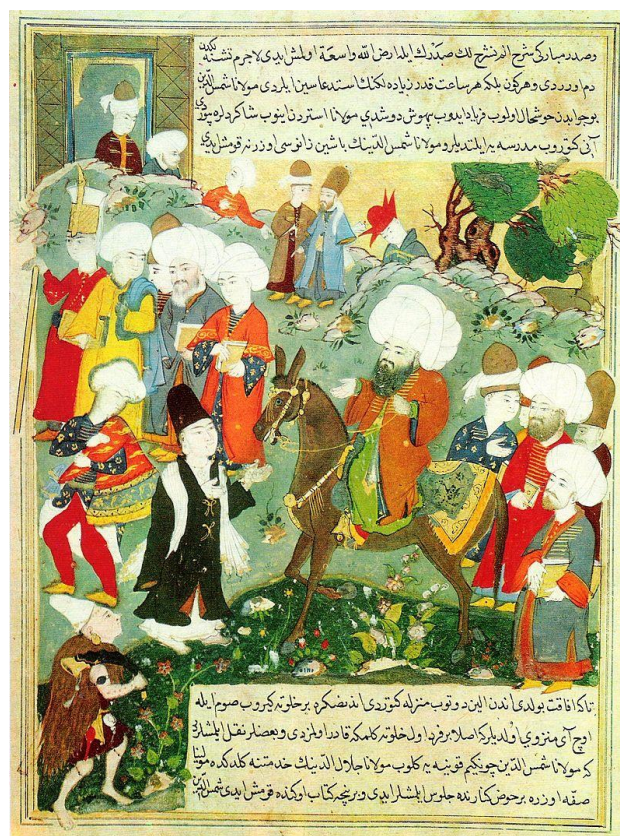 وصدر مباركى شرح الم نشرح لك صدرك ايله ارض الله واسعة اولمش ايدى لاجرم تشنه لكدن
دم اورردى وهركون بلكه هر ساعت قدر زياده لكنك استدعاسين ايلردى مولانا شمس الدين
بو جوابدن خوشحال اولوب فرياد ايدوب بيهوش دوشدى مولانا استردن اينوب شاكردلره بيوردى
آنى كوتروب مدرسه يه ايلتديلر ومولانا شمس الدينك باشين زانوسى اوزرنه قومش ايدى
تاكه افاقت بولدى اندن الين دوتوب منزله كوتردى اندنصكره بر خلوته كيروب صوم ايله
اوچ آى منزوي اولديلركه اصلا بر فرد اول خلوته كلمكه قادر اولمزدى وبعضلر نقل ايلمشلردر
كه مولانا شمس الدين چونكيم قونيه يه كلوب مولانا جلال الدينك خدمتنه كلدكده مولانا
صفه اوزره بر حوض كنارنده جلوس ايلمشلر ايدى وبر نيچه كتاب اوكنده قومش ايدى شمس الدين